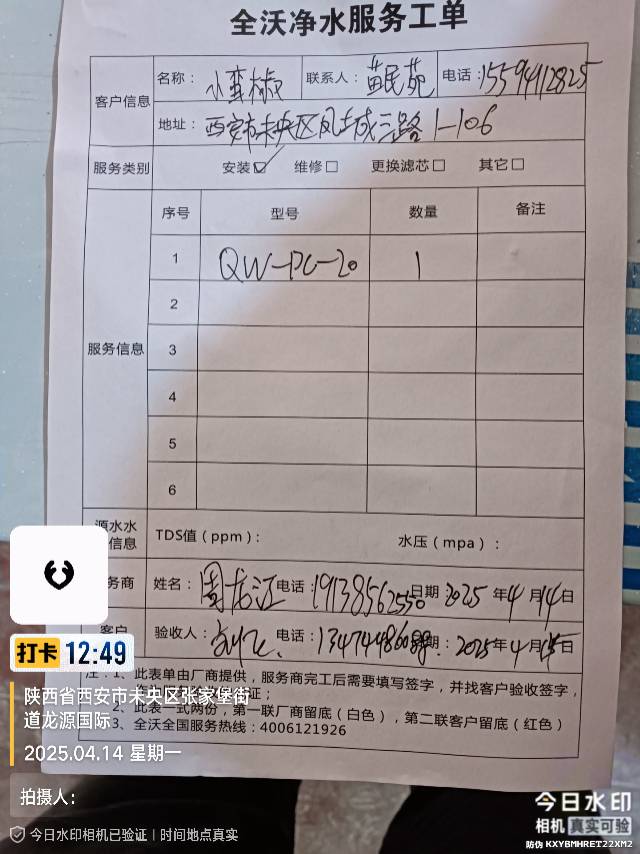 全沃净水服务工单
客户信息
名称： 小蛮椒 联系人： 苗民苑 电话：15594912825
地址： 西安市未央区凤城三路1-106
服务类别 安装☑ 维修□ 更换滤芯□ 其它□
服务信息
序号 型号 数量 备注
1 QW-PC-20 1
2
3
4
5
6
源水水
信息 TDS值（ppm）： 水压（mpa）：
务商 姓名： 周龙江 电话：19138562550 日期：2025年4月14日
客户 验收人： 电话： 期：2025年4月 日
注：1、此表单由厂商提供，服务商完工后需要填写签字，并找客户验收签字，
证；
2、此表一式两份，第一联厂商留底（白色），第二联客户留底（红色）
3、全沃全国服务热线：4006121926
打卡 12:49
陕西省西安市未央区张家堡街
道龙源国际
2025.04.14 星期一
拍摄人：
今日水印相机已验证 | 时间地点真实
今日水印
相机 真实可验
防伪 KXYBMHRET22XM2